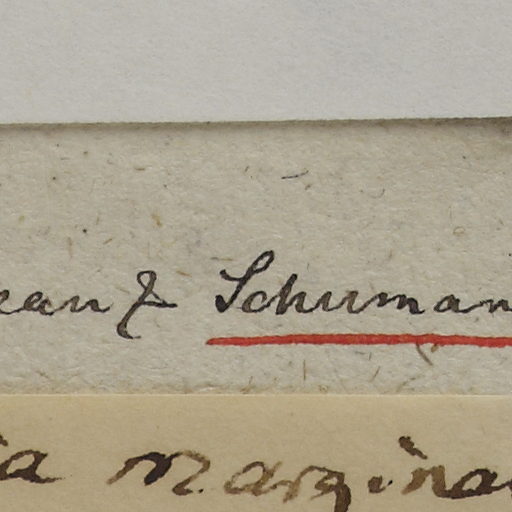 ean & Schuman
ia margina